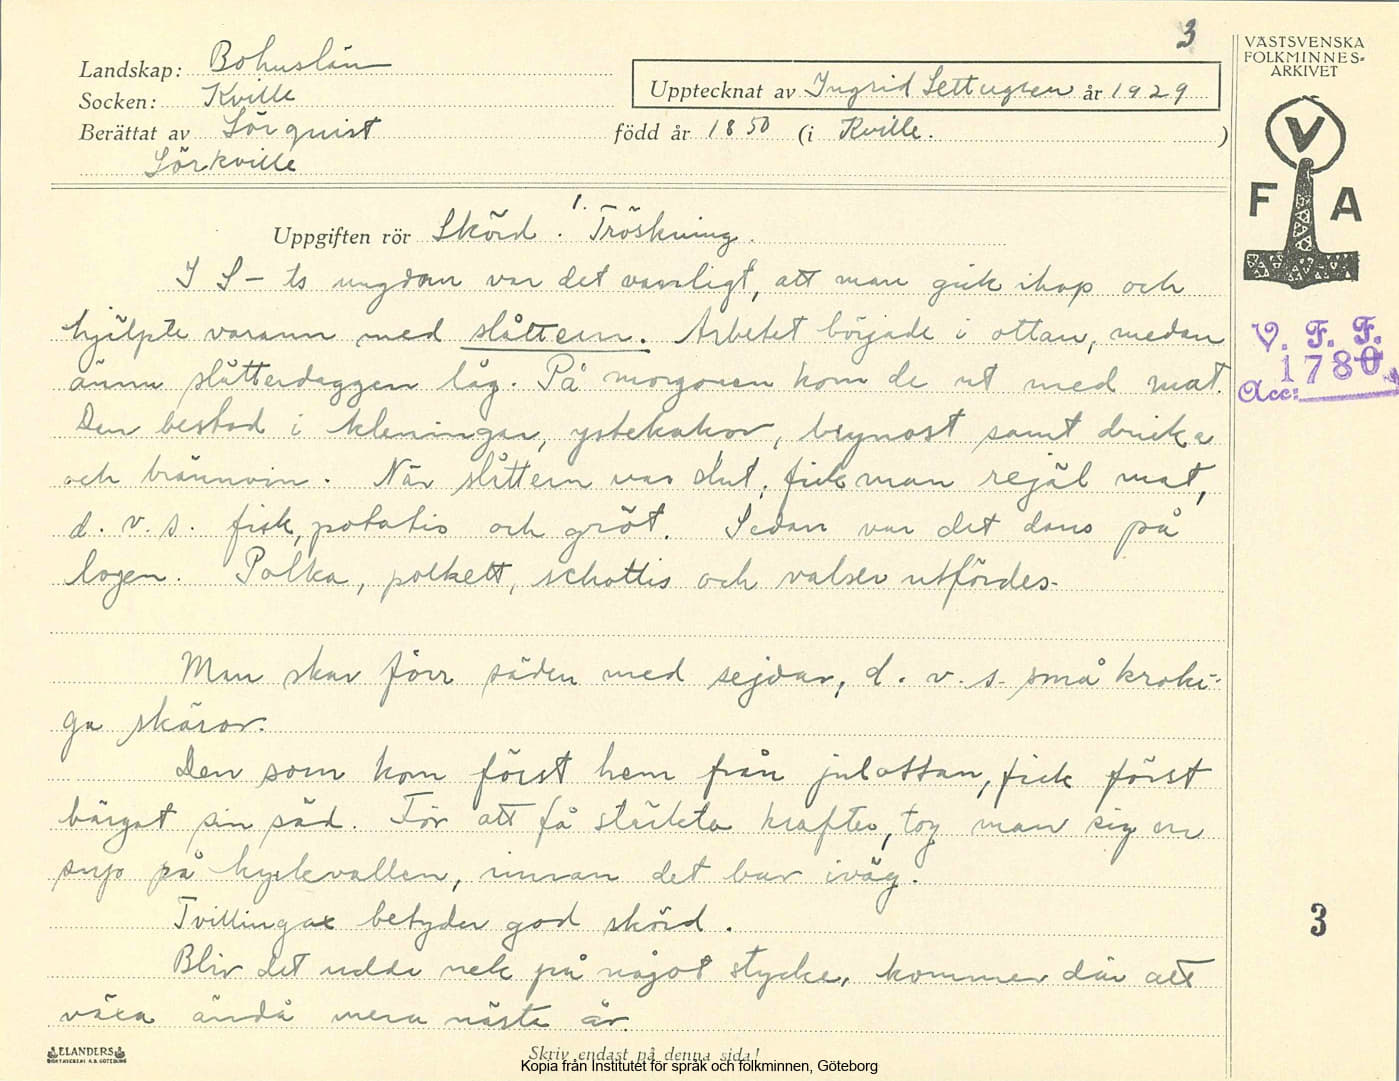 3
VÄSTSVENSKA
FOLKMINNES-
ARKIVET
Landskap: Bohuslän
Socken: Kville
Upptecknat av Ingrid år 1929
Berättat av Sörquist född år 1850 (i Kville. )
Sörkville
V
F A
Uppgiften rör Skörd. 1. Tröskning.
I S-ts ungdom var det vanligt, att man gick ihop och
hjälpte varann med slåttern. Arbetet började i ottan, medan
ännu slåtterdaggen låg. På morgonen kom de ut med mat.
Den bestod i kleningar, ystekakor, brynost samt dricka
och brännvin. När slåttern var slut, fick man rejäl mat,
d. v. s. fisk, potatis och gröt. Sedan var det dans på
logen. Polka, polkett, schottis och valser utfördes.
Man skar förr säden med sejdar, d. v. s. små kroki-
ga skäror.
Den som kom först hem från julottan, fick först
bärgat sin säd. För att få stärkta krafter, tog man sig en
sup på kyrkvallen, innan det bar iväg.
Tvillingax betyder god skörd.
Blir det udda nek på något stycke, kommer där att
växa ändå mera nästa år.
V. F. F.
1780
Acc:
3
ELANDERS
BOKTRYCKERI A.B. GÖTEBORG
Skriv endast på denna sida!
Kopia från Institutet för språk och folkminnen, Göteborg